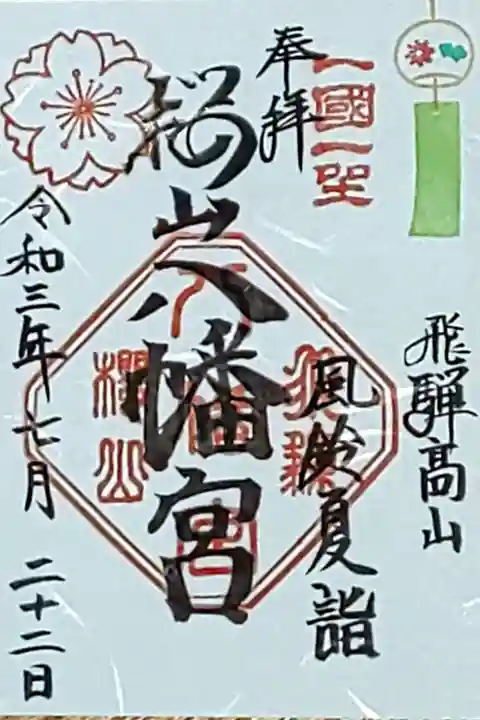 飛騨高山
一國一社
奉拝
風鈴夏詣
桜山八幡宮
櫻山
令和三年七月二十二日